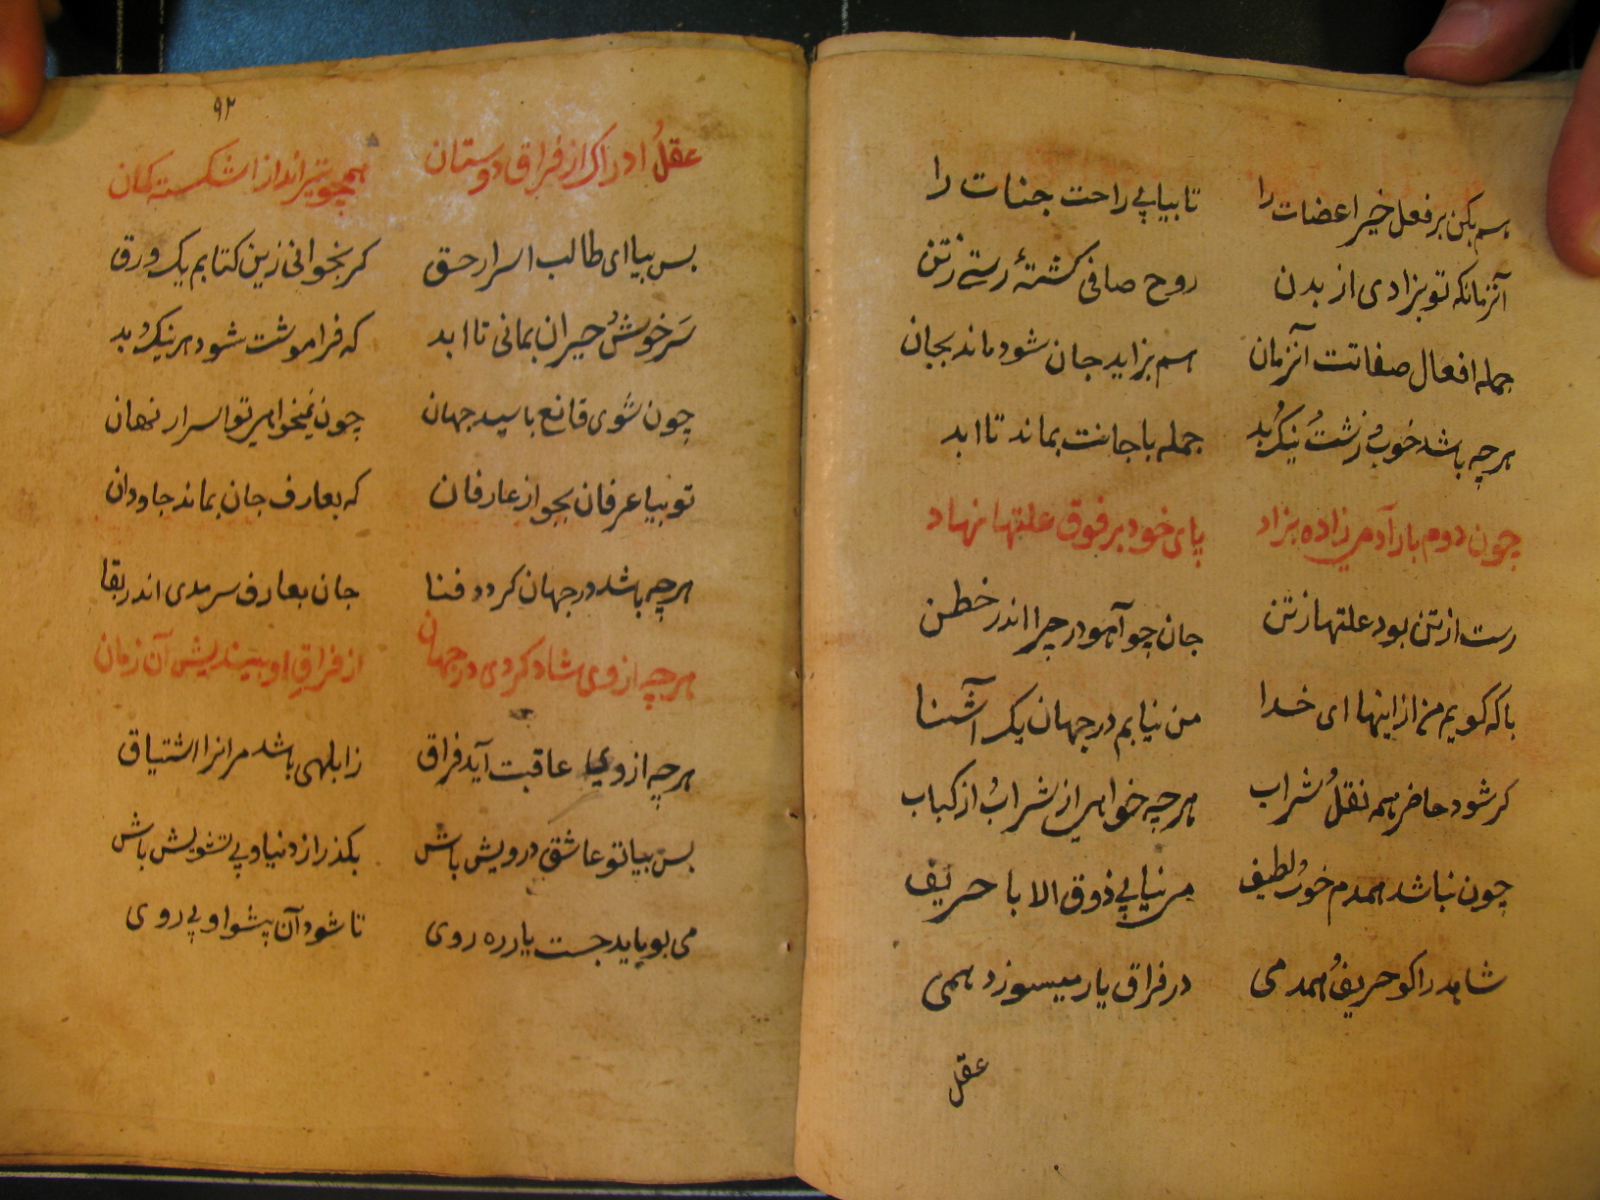 اسم بکن بر فعل خیر اعضات را تا بیابی راحت جنات را
آنزمانکه تو بزادی از بدن روح صافی کشتهٔ رستی ز تن
جمله افعال صفاتت آنزمان اسم بزاید جان شود ماند بجان
هرچه باشد خوبُ زشتُ نیکُ بد جمله با جانت بماند تا ابد
چون دوم بار آدمی زاده بزاد پای خود بر فوق علتها نهاد
رست از تن بود علتها ز تن جان چو آهو در چرا اندر خطن
با که کویم من از اینها ای خدا من نیابم در جهان یک آشنا
کر شود حاضر همه نقلُ شراب هرچه خواهی از شرابُ از کباب
چون نباشد همدم خوبُ لطیف می نیابی ذوق الا با حریف
شاهد را کو حریفُ همدمی در فراق یار میسوزد همی
عقل
۹۲
عقلُ ادراک از فراق دوستان همچو تیرانداز اشکسته کمان
بس بیا ای طالب اسرار حق کر بخوانی زین کتابم یک ورق
سَرخوشُ حیران بمانی تا ابد که فراموشت شود هر نیکُ بد
چون شوی قانع باسید جهان چون نمیخواهی تو اسرار نهان
تو بیا عرفان بجو از عارفان که بعارف جان بماند جاودان
هرچه باشد در جهان کردد فنا جان بعارف سرمدی اندر بقا
هرچه از وی شاد کردی در جهان از فراق او بیندیش آن زمان
هرچه از وی عاقبت آید فراق ز ابلهی باشد مر انرا اشتیاق
بس بیا تو عاشق درویش باش بکذر از دنیا و بی تشویش باش
می بوباید جست یار ره روی تا شود آن پیشوا و پی روی